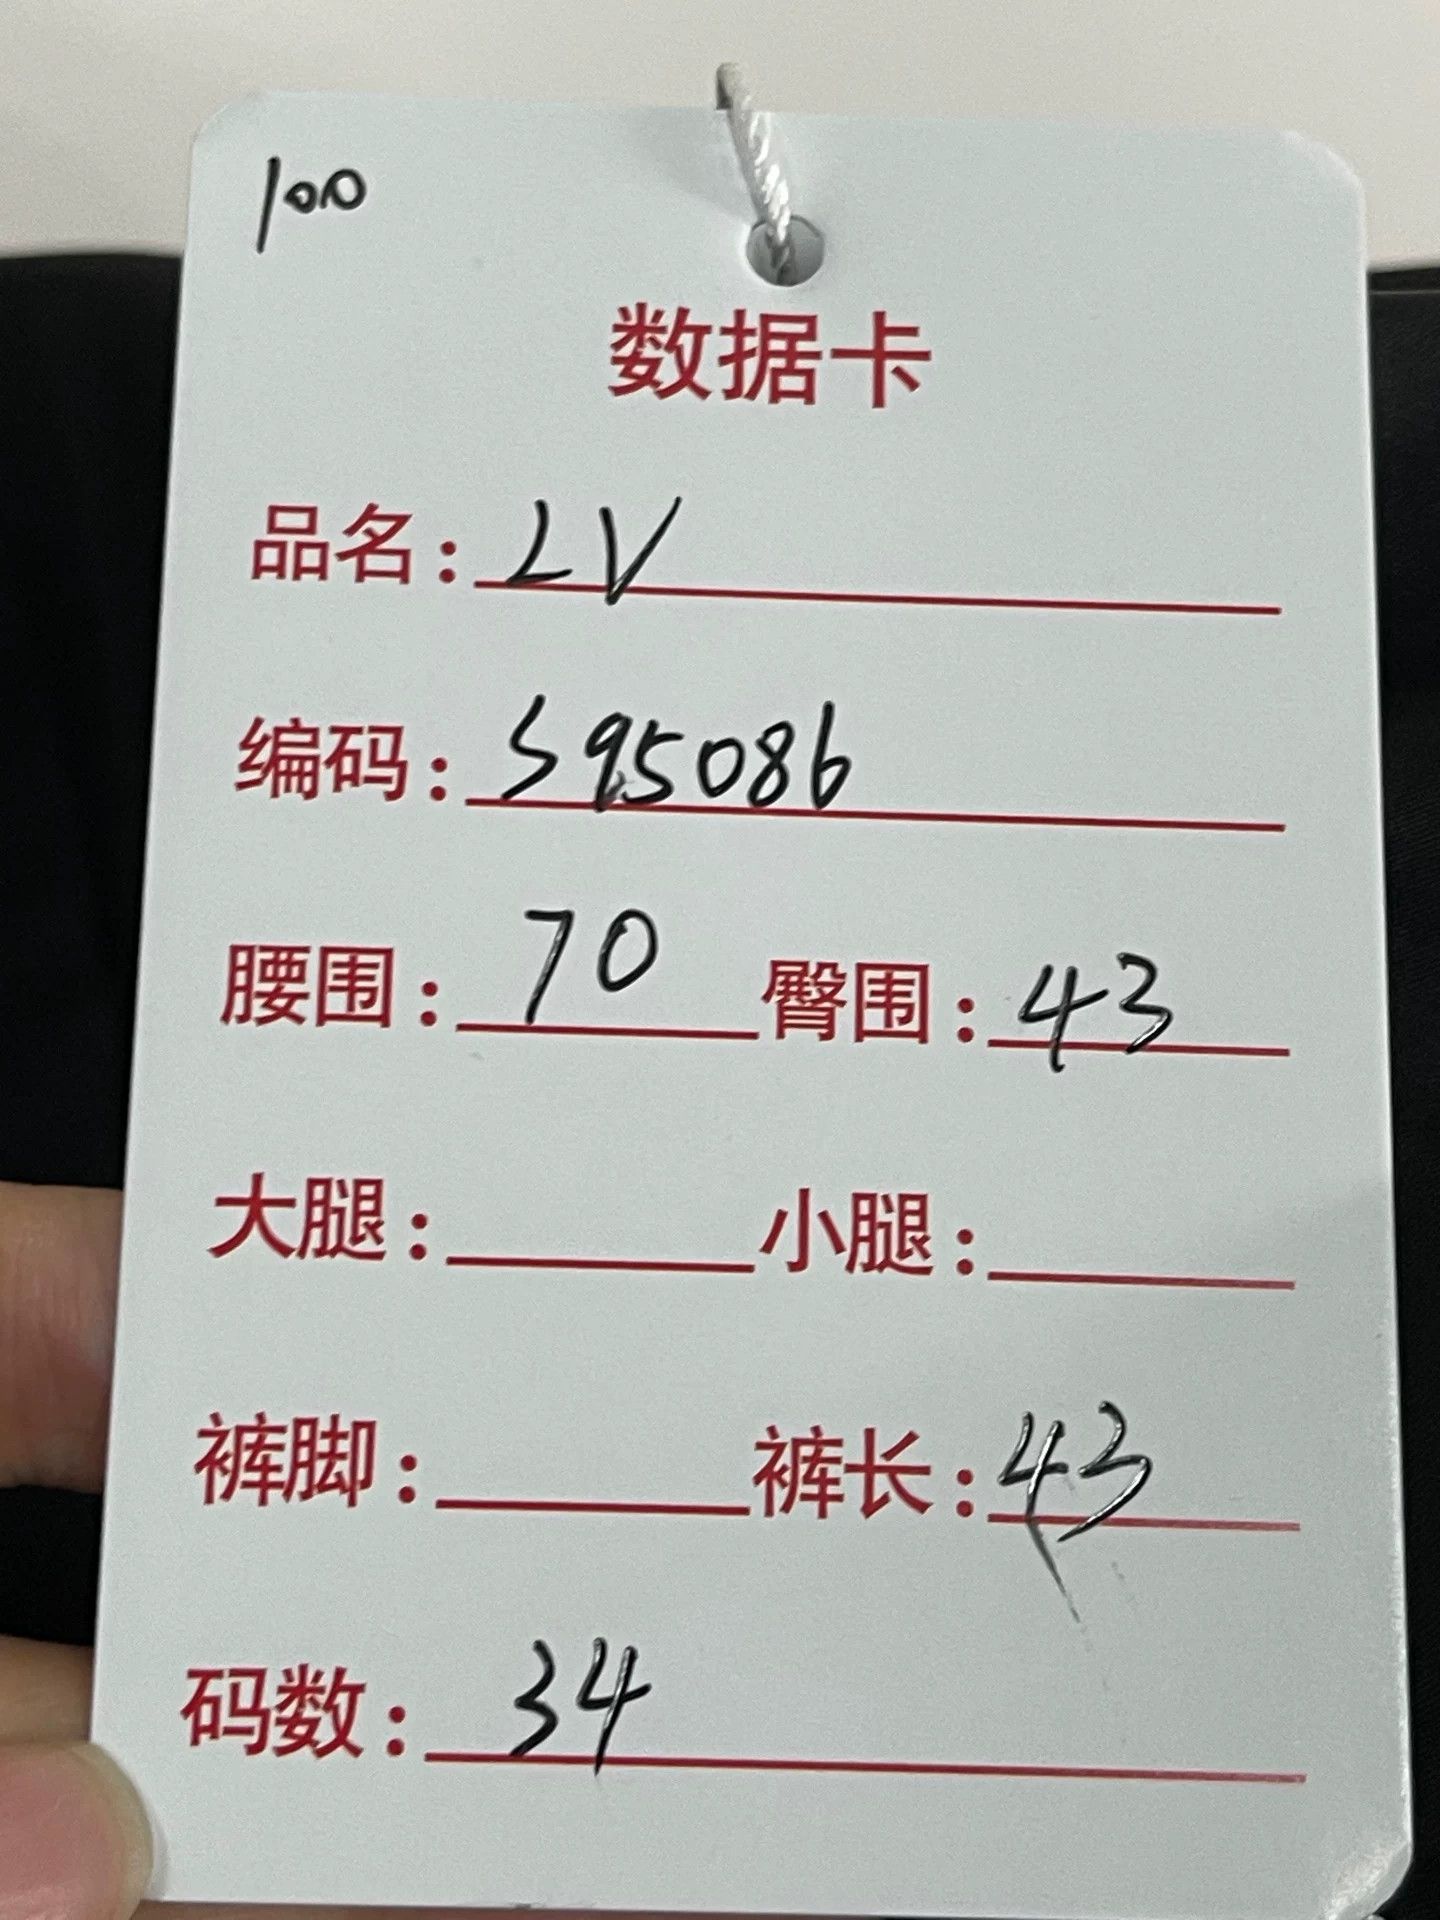 100
数据卡
品名：LV
编码：S95086
腰围：70 臀围：43
大腿： 小腿：
裤脚： 裤长：43
码数：34